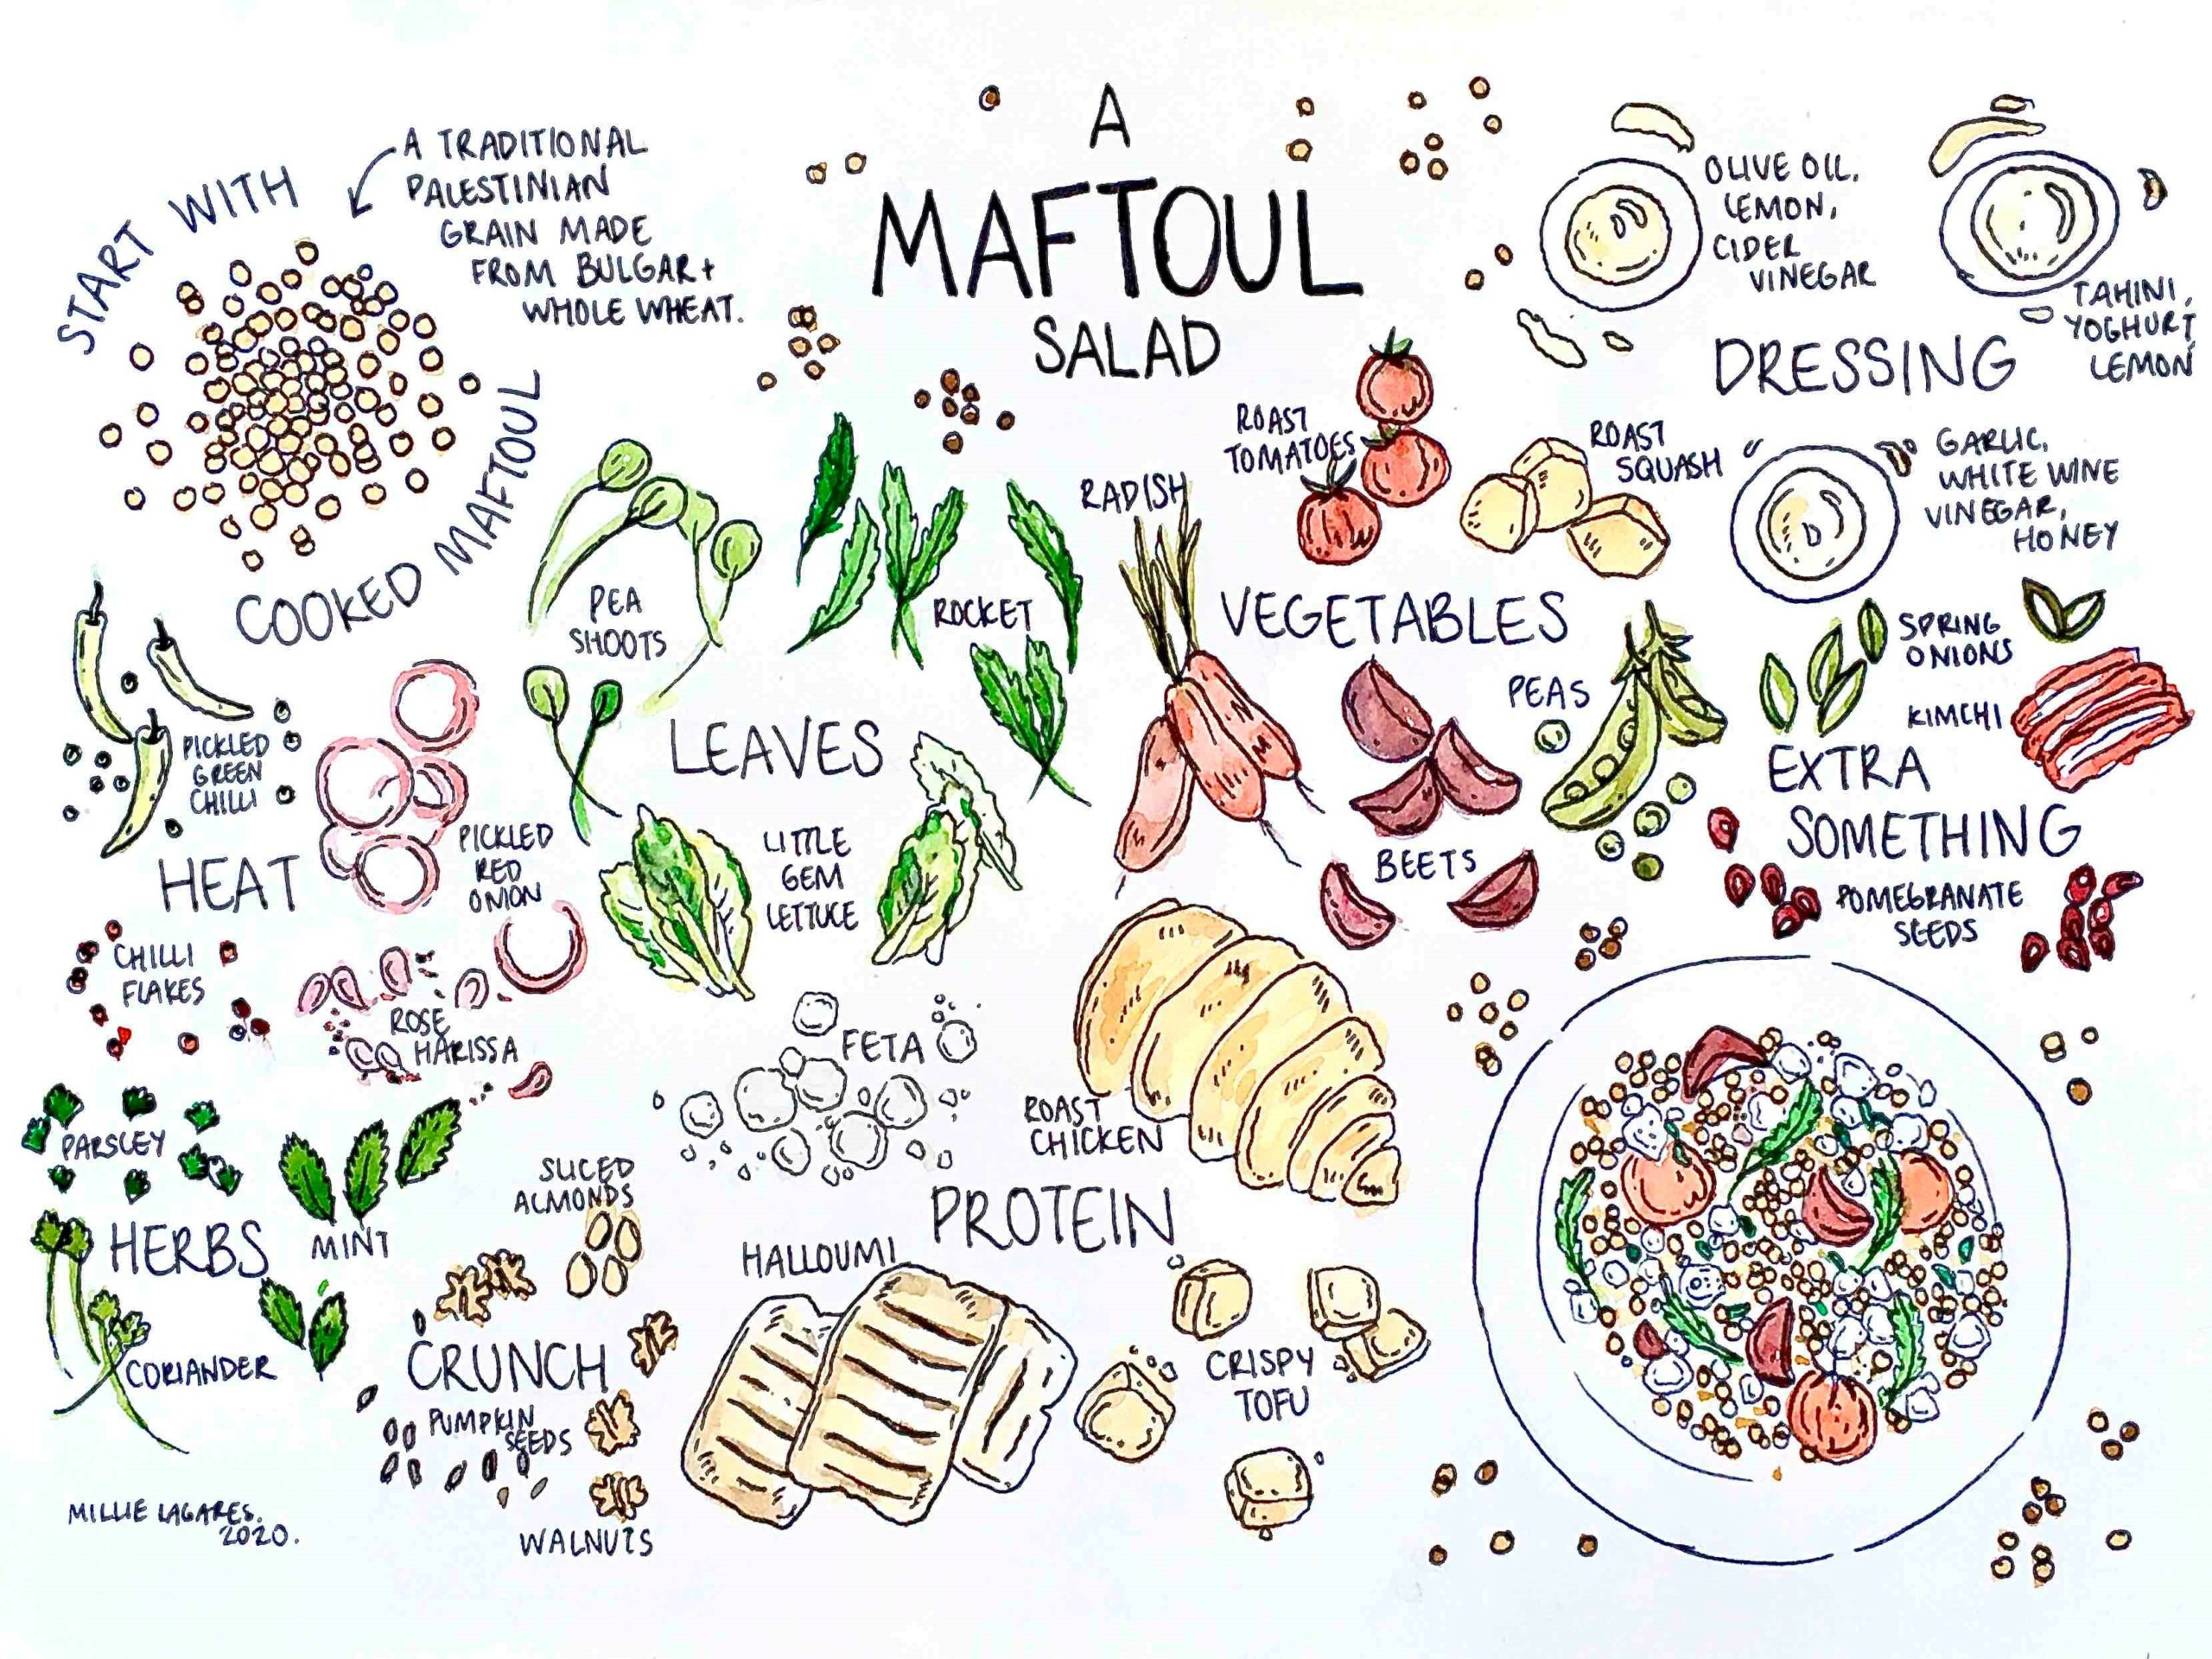 A
MAFTOUL
SALAD
START WITH
COOKED MAFTOUL
A TRADITIONAL
PALESTINIAN
GRAIN MADE
FROM BULGAR +
WHOLE WHEAT.
OLIVE OIL,
LEMON,
CIDER
VINEGAR
TAHINI,
YOGHURT,
LEMON
DRESSING
GARLIC,
WHITE WINE
VINEGAR,
HONEY
ROAST
TOMATOES
ROAST
SQUASH
RADISH
VEGETABLES
PEAS
BEETS
PEA
SHOOTS
ROCKET
LEAVES
LITTLE
GEM
LETTUCE
SPRING
ONIONS
KIMCHI
EXTRA
SOMETHING
POMEGRANATE
SEEDS
PICKLED
GREEN
CHILLI
HEAT
PICKLED
RED
ONION
CHILLI
FLAKES
ROSE
HARISSA
FETA
ROAST
CHICKEN
PROTEIN
HALLOUMI
CRISPY
TOFU
PARSLEY
HERBS
MINT
CORIANDER
SLICED
ALMONDS
CRUNCH
PUMPKIN
SEEDS
WALNUTS
MILLIE LAGARES.
2020.